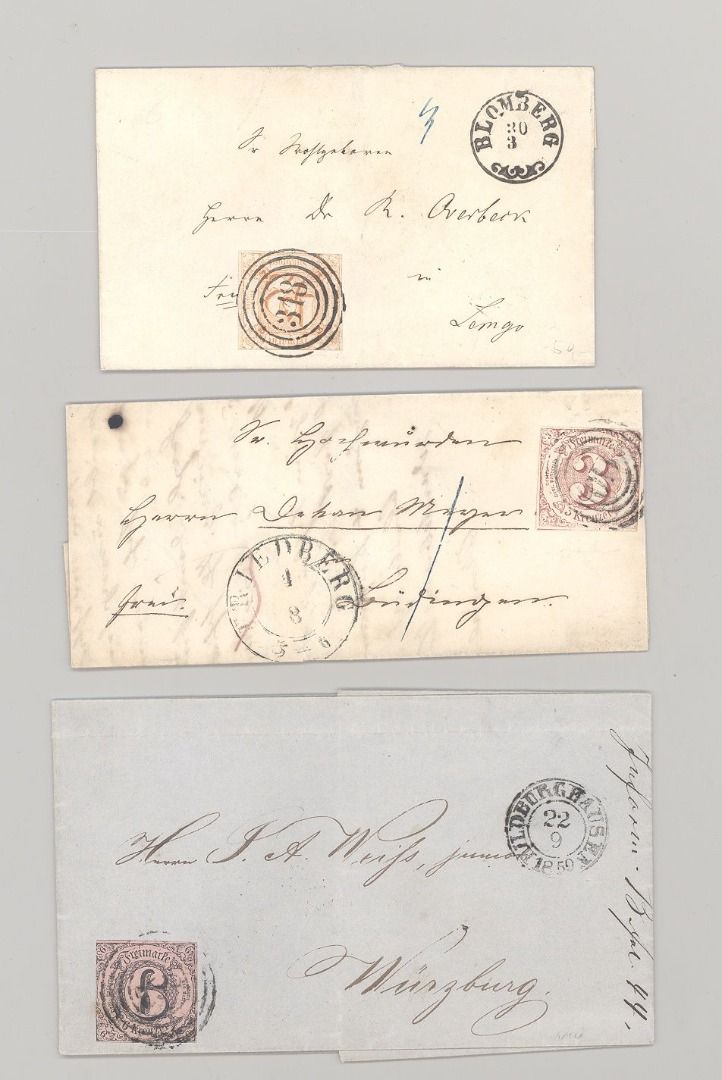 BLOMBERG
30
3
Sr Wohlgeboren
Herrn Dr R. Overbeck
in
318
Lemgo
Sr. Hochwürden
Freimarke
3
3 Kreuzer
Herrn Dekan Meyer
FRIEDBERG
1
8
frei.
Büdingen.
HILDBURGHAUSEN
22
9
1859
Herrn J. A. Weiss, junior
Freimarke
6
Würzburg.